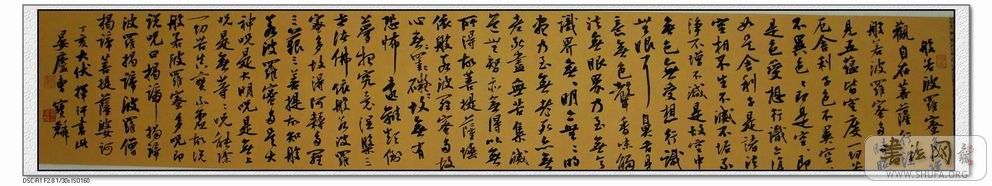 般若波羅蜜
觀自在菩薩行
般若波羅蜜
見五蘊皆空度一切苦
厄舍利子色不異空空
不異色色即是空空即
是色受想行識亦復
如是舍利子是諸法
空相不生不滅不垢不
淨不增不減是故空中
無色無受想行識
無眼耳鼻舌身
意無色聲香味觸
法無眼界乃至無意
識界無無明亦無無明
盡乃至無老死亦無
老死盡無苦集滅
道無智亦無得以無
所得故菩提薩埵
依般若波羅蜜多故
心無罣礙罣礙故無有
恐怖遠離顛倒
夢想究竟涅槃三
世諸佛依般若波羅
蜜多故得阿耨多羅
三藐三菩提故知般
若波羅蜜多是大
神咒是大明咒是無上
咒是無等等咒能除
一切苦真實不虛故說
般若波羅蜜多咒即
說咒曰揭諦揭諦
波羅揭諦波羅僧
揭諦菩提薩婆訶
丁亥大伏揮汗書此
晏廬曹寶麟
书法网
WWW.SHUFA.ORG
DSC-R1 F2.8 1/30s ISO160